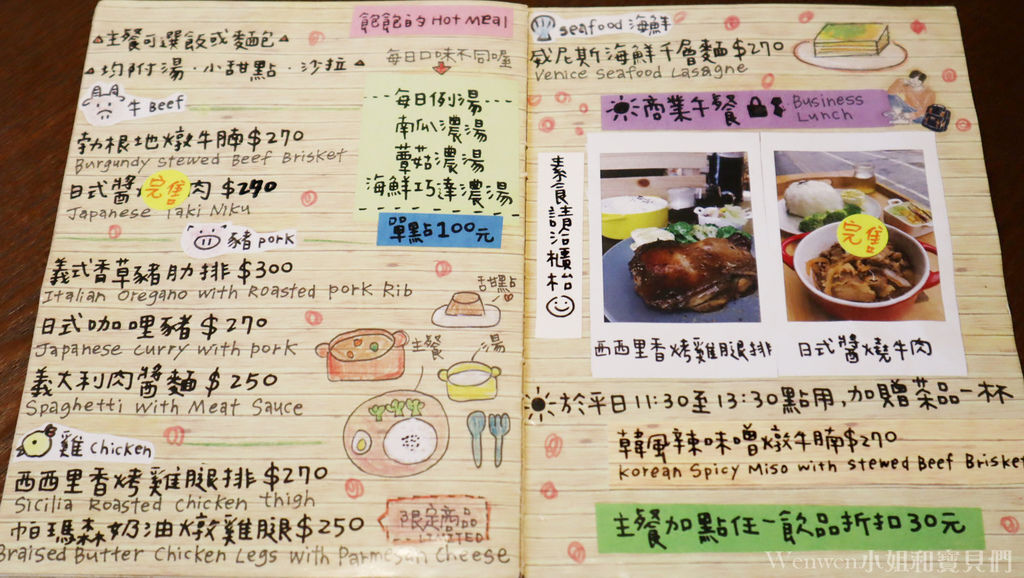 飽飽的 Hot Meal
▲主餐可選飯或麵包▲
▲均附湯·小甜點·沙拉▲
每日口味不同喔
每日例湯
南瓜濃湯
蘑菇濃湯
海鮮巧達濃湯
單點100元
牛 Beef
勃根地燉牛腩$270
Burgundy stewed Beef Brisket
日式醬 肉 $270
完售
Japanese Yaki Niku
豬 pork
義式香草豬肋排 $300
Italian Oregano with Roasted pork Rib
日式咖哩豬 $270
Japanese curry with pork
義大利肉醬麵 $250
Spaghetti with Meat Sauce
甜點
主餐
湯
雞 Chicken
西西里香烤雞腿排 $270
Sicilia Roasted chicken thigh
帕瑪森奶油燉雞腿$250
Braised Butter Chicken Legs with Parmesan Cheese
限定商品
LIMITED
seafood 海鮮
威尼斯海鮮千層麵 $270
Venice Seafood Lasagne
商業午餐 Business Lunch
素食請洽櫃檯
完售
西西里香烤雞腿排
日式醬燒牛肉
於平日11:30至13:30點用,加贈茶品一杯
韓風辣味噌燉牛腩$270
Korean Spicy Miso with stewed Beef Brisket
主餐加點任一飲品折扣30元
Wenwen小姐和寶貝們